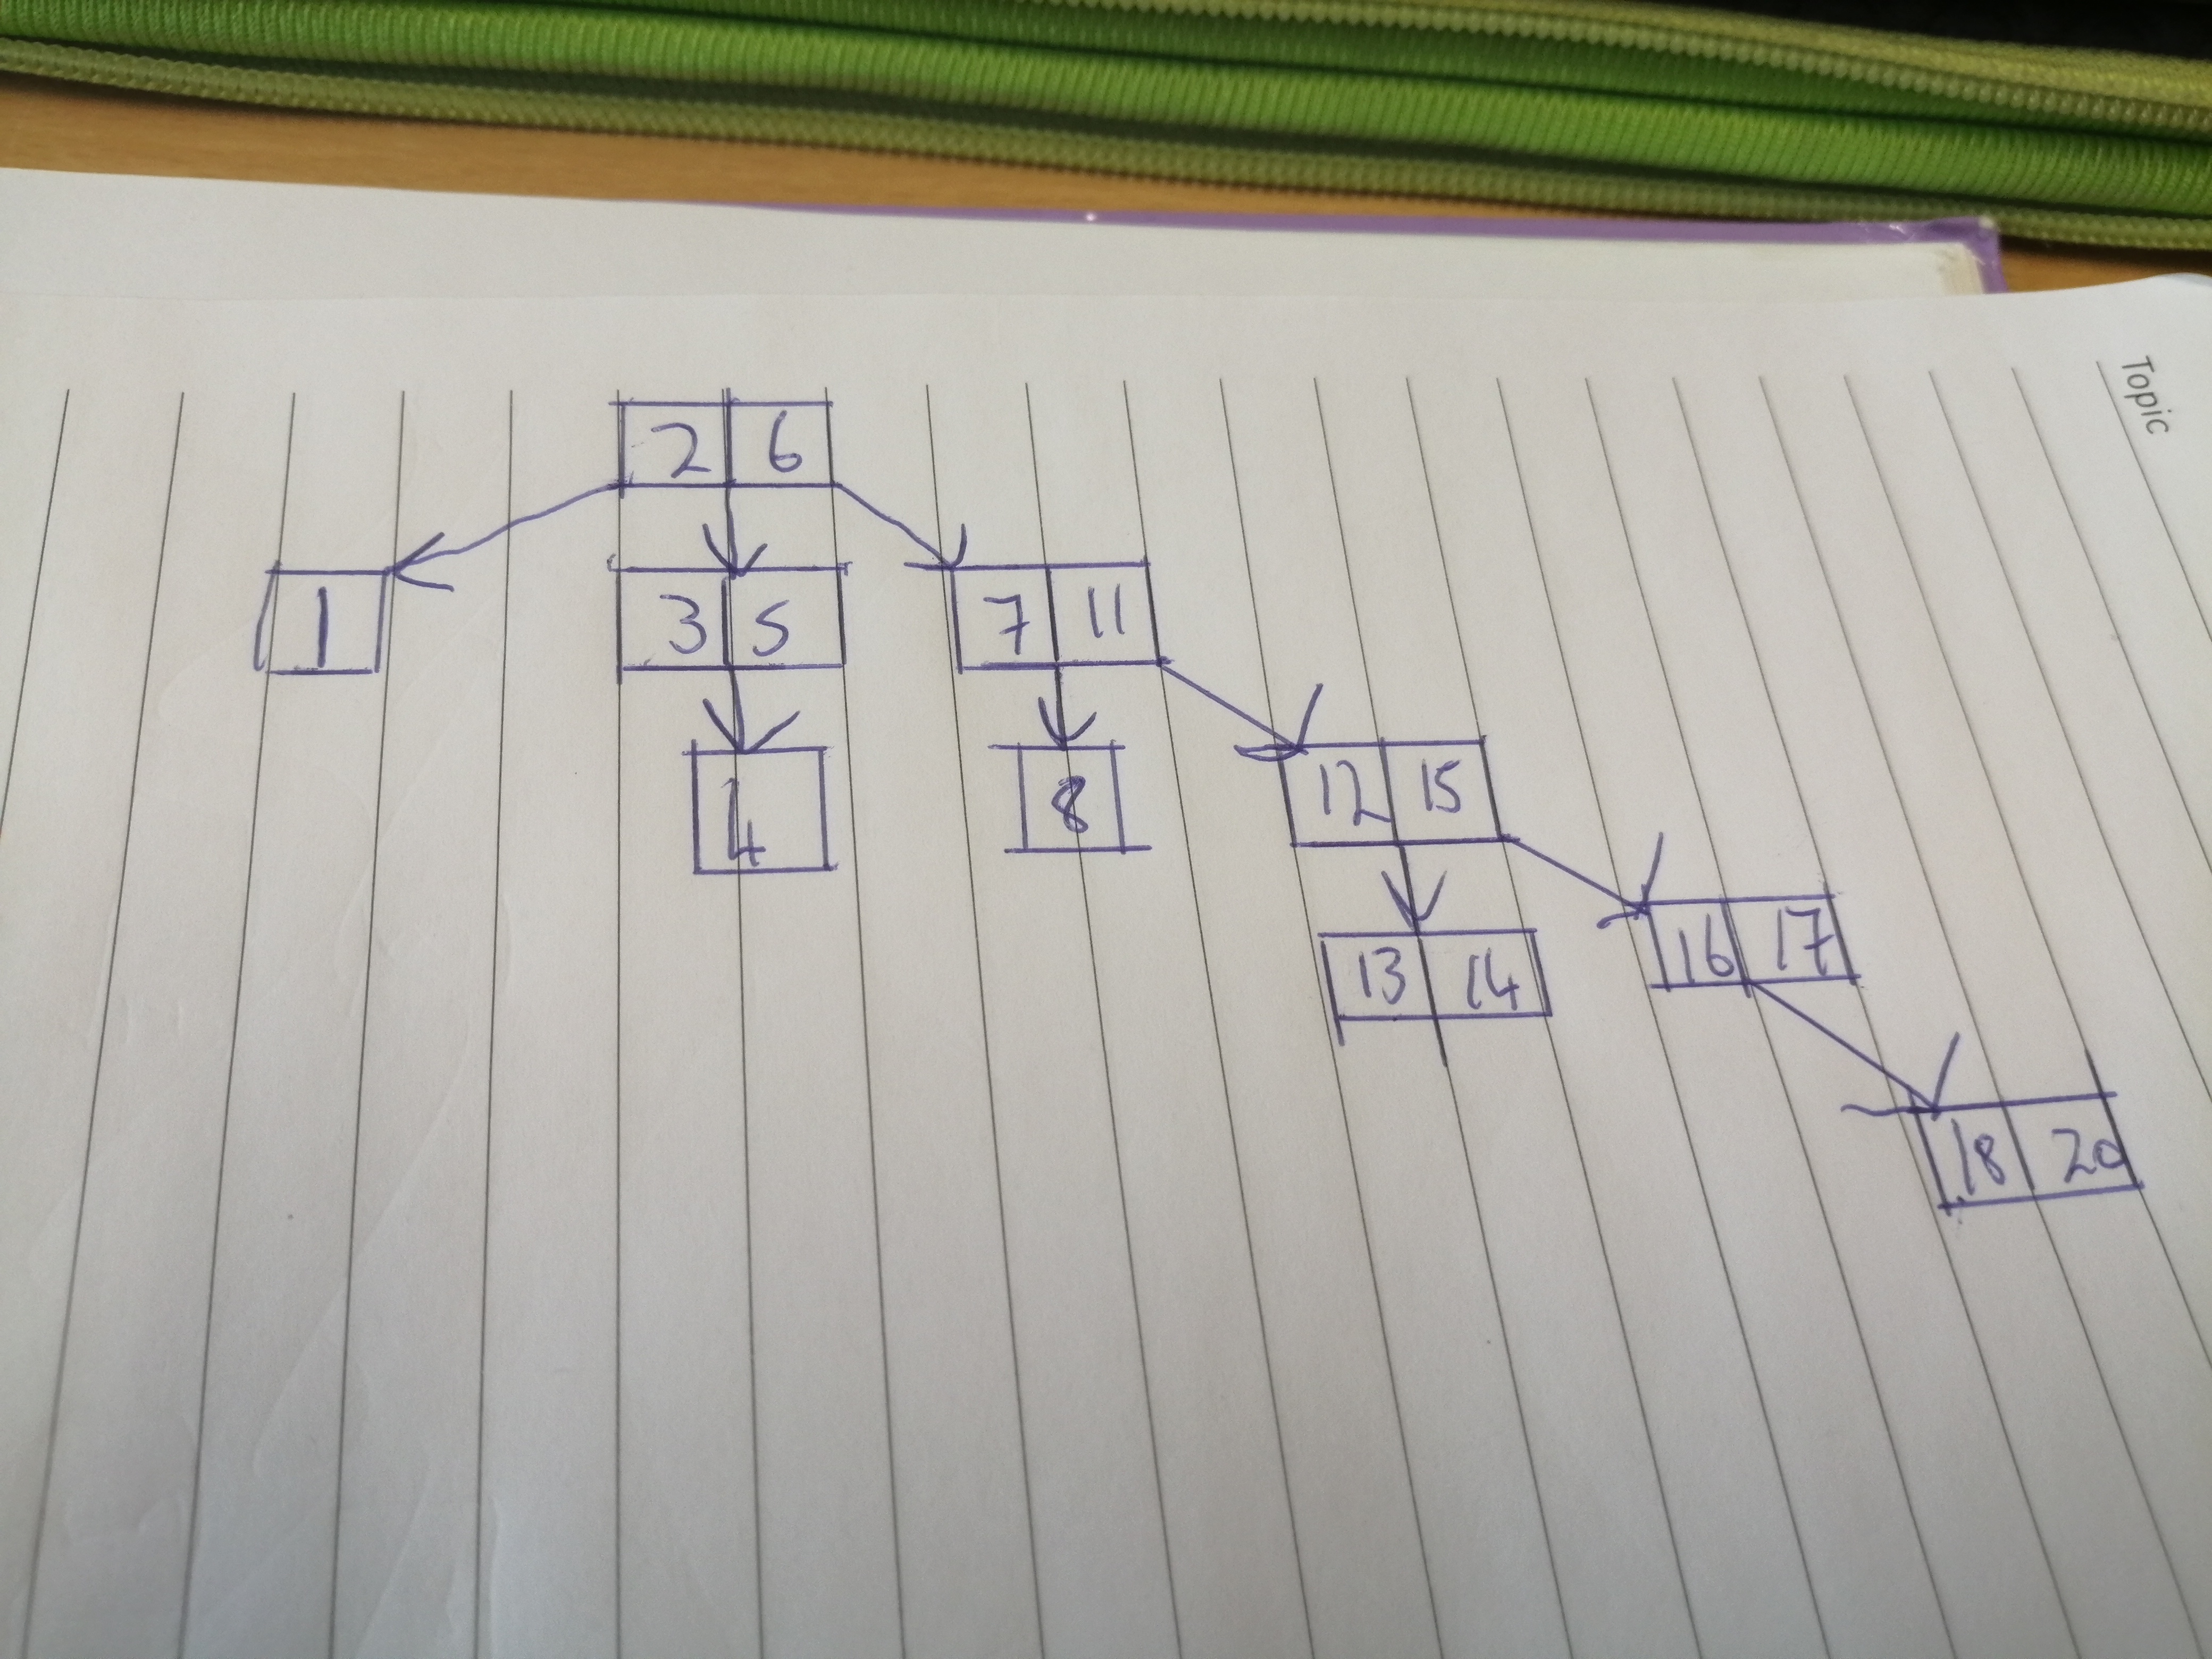 Topic
2 6
1 3 5 7 11
4 8 12 15
13 14 16 17
18 20